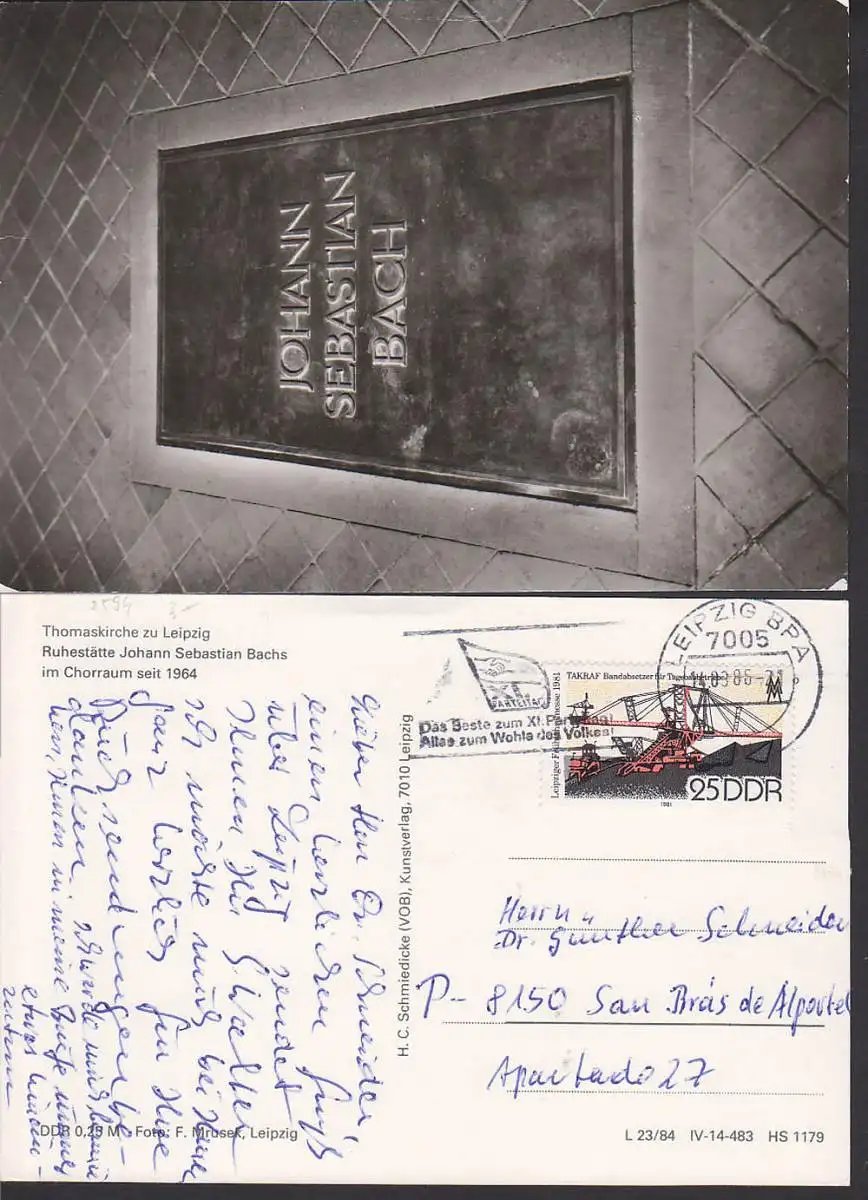 JOHANN
SEBASTIAN
BACH
Thomaskirche zu Leipzig
Ruhestätte Johann Sebastian Bachs
im Chorraum seit 1964
LEIPZIG BPA
7005
XI.
PARTEITAG
Das Beste zum XI. Parteitag!
Alles zum Wohle des Volkes!
TAKRAF Bandabsetzer für Tagebaubetrieb
Leipziger Frühjahrsmesse 1981
MM
25 DDR
1981
Lieber Herr Dr. Schneider,
einen herzlichen Gruß
über Leipzig sendet
Ihnen Ihr
Ich möchte mich bei Ihnen
ganz herzlich für Ihre
danken. würde mich
Ihnen in meine Briefe immer
etwas
H. C. Schmiedicke (VOB), Kunstverlag, 7010 Leipzig
Herrn
Dr. Günther Schneider
P- 8150 San Brás de Alportel
Apartado 27
DDR 0,25 M · Foto: F. Mrusek, Leipzig
L 23/84 IV-14-483 HS 1179